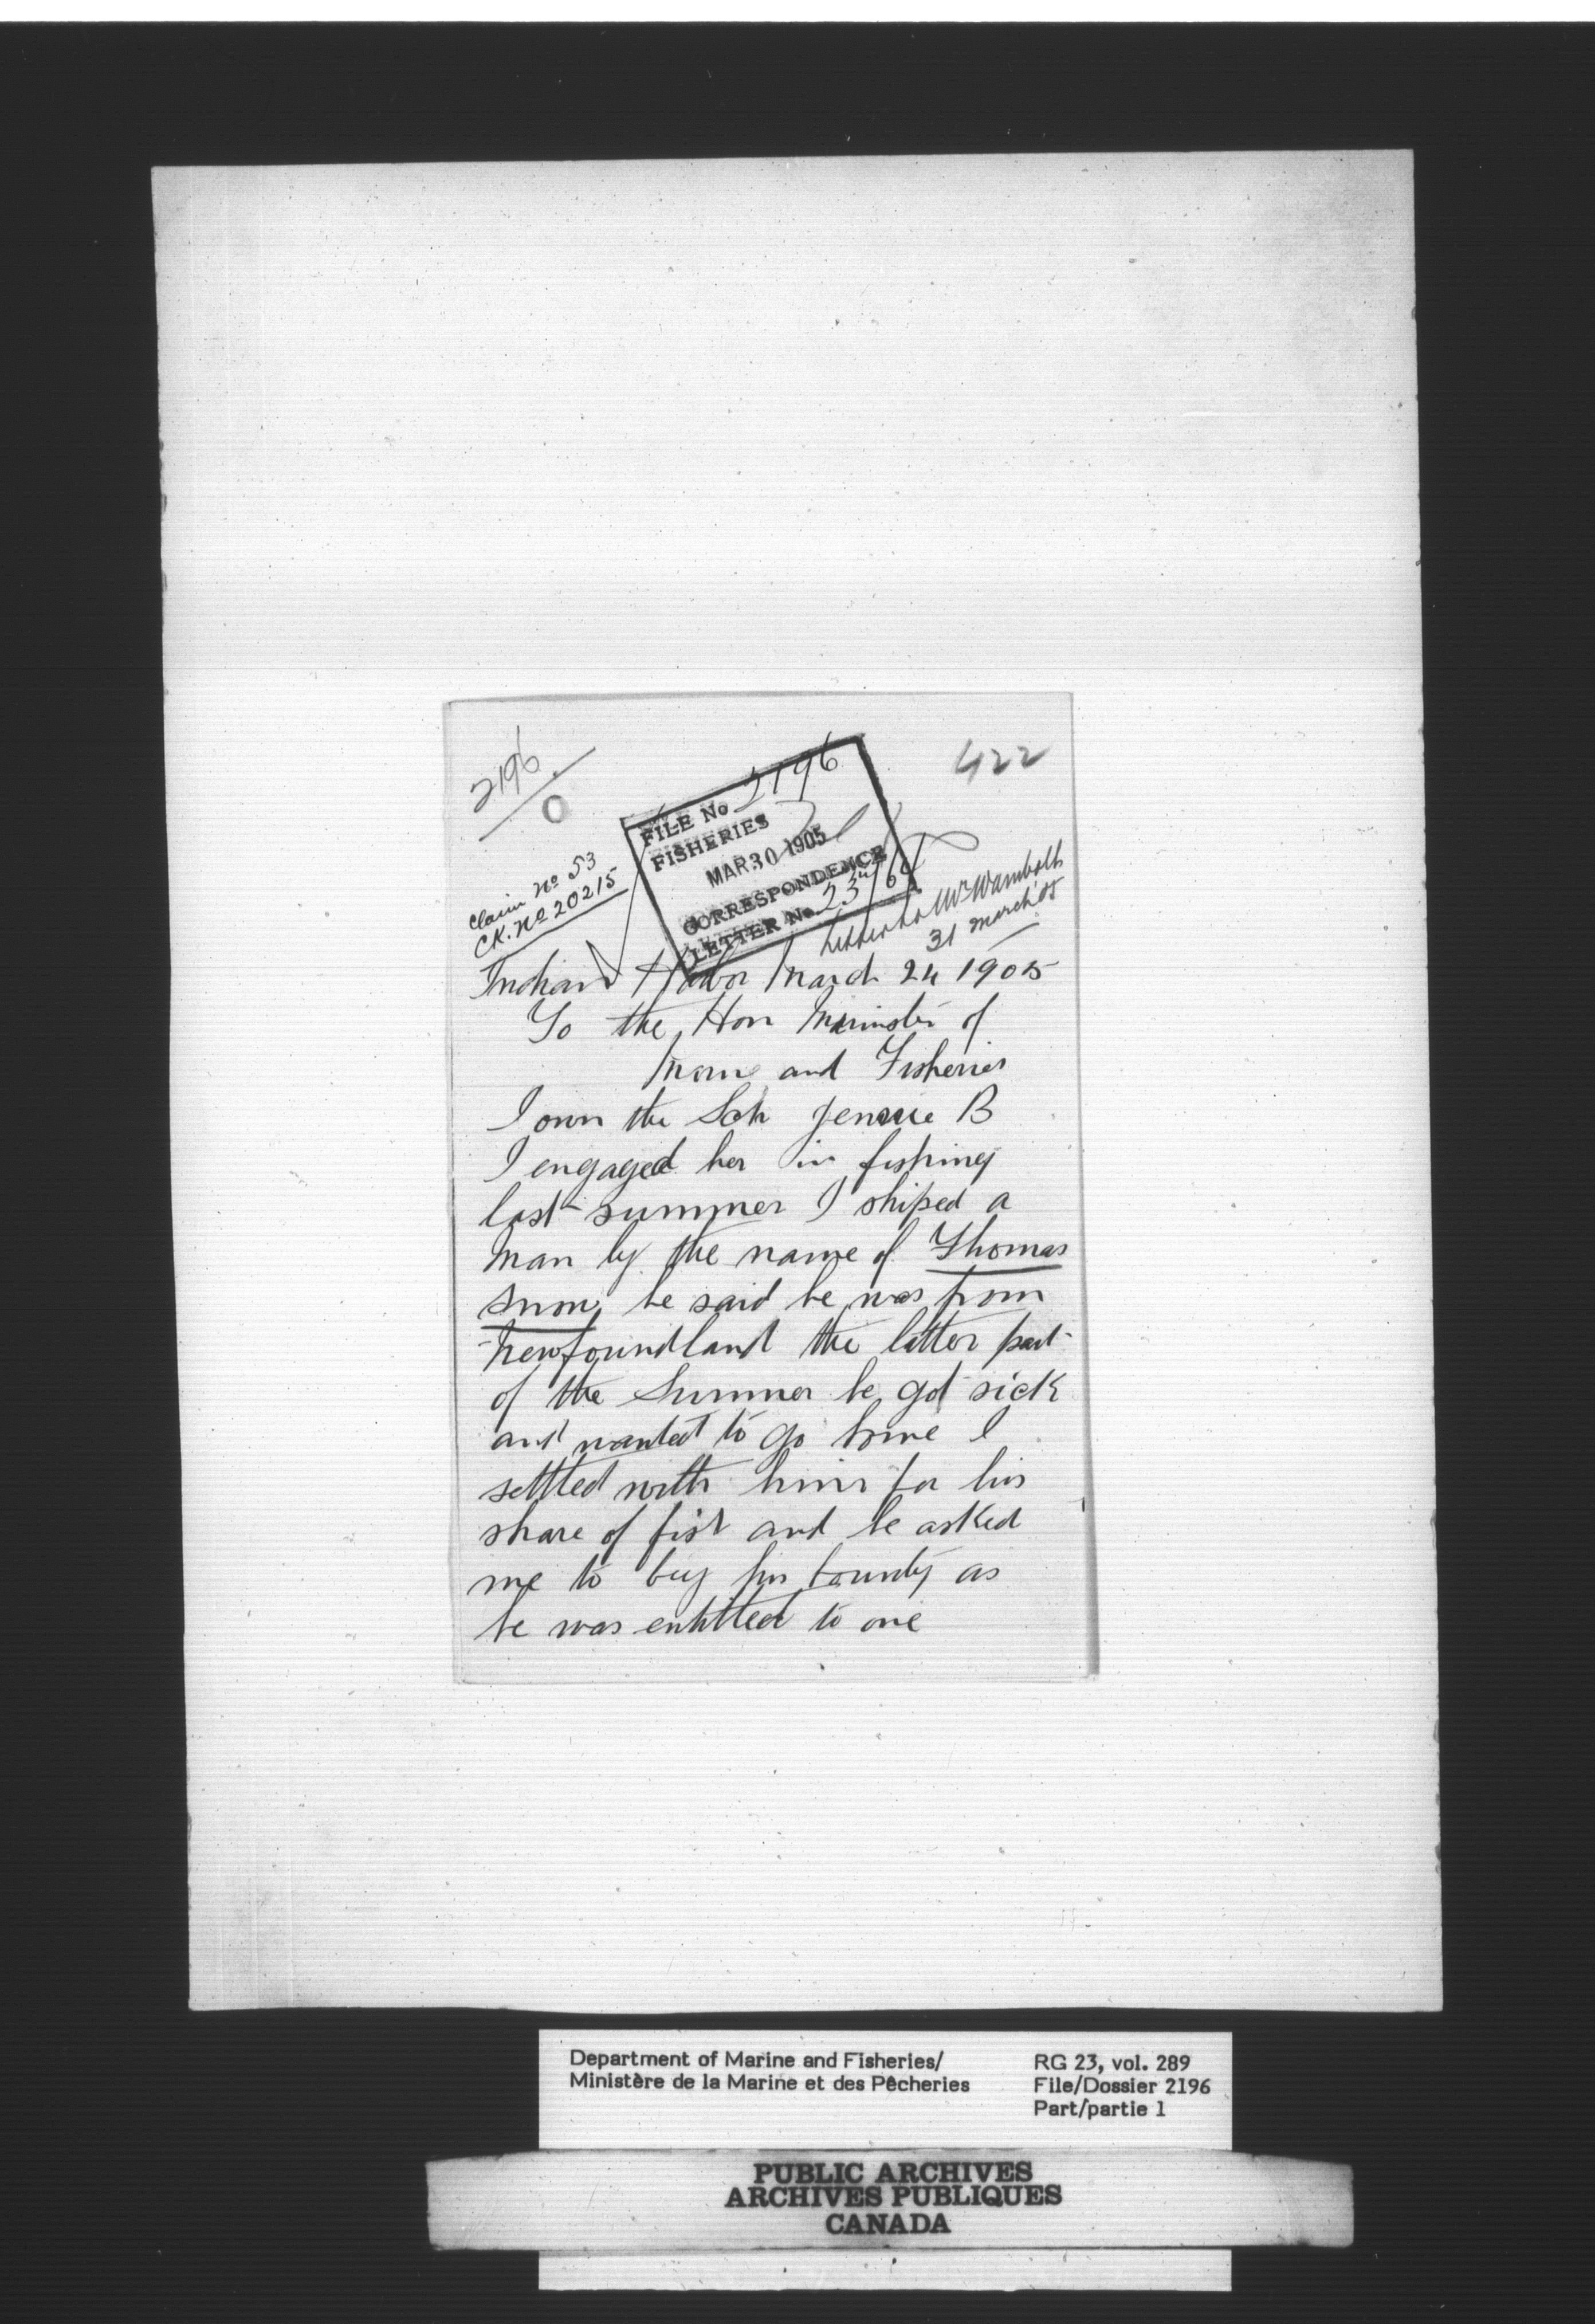 2196
0
422
FILE No 2196
FISHERIES
MAR 30 1905
CORRESPONDENCE
LETTER No.
Claim No 53
CK. No 20215
Letter to Mr Wambolt
31 March '05
Indian Harbor March 24 1905
To the Hon Minister of
Marine and Fisheries
I own the Sch Jennie B
I engaged her in fishing
last summer I shiped a
man by the name of Thomas
Snow, he said he was from
Newfoundland the latter part
of the Summer he got sick
and wanted to go home I
settled with him for his
share of fish and he asked
me to buy his bounty as
he was entitled to one
Department of Marine and Fisheries/
Ministère de la Marine et des Pêcheries
RG 23, vol. 289
File/Dossier 2196
Part/partie 1
PUBLIC ARCHIVES
ARCHIVES PUBLIQUES
CANADA